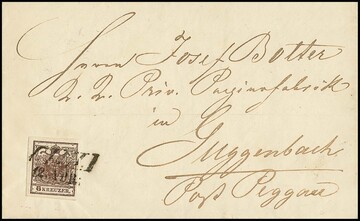 Herrn Josef Botter
k. k. Priv. Papierfabrik
in
Guggenbach
Post Peggau
6 KREUZER